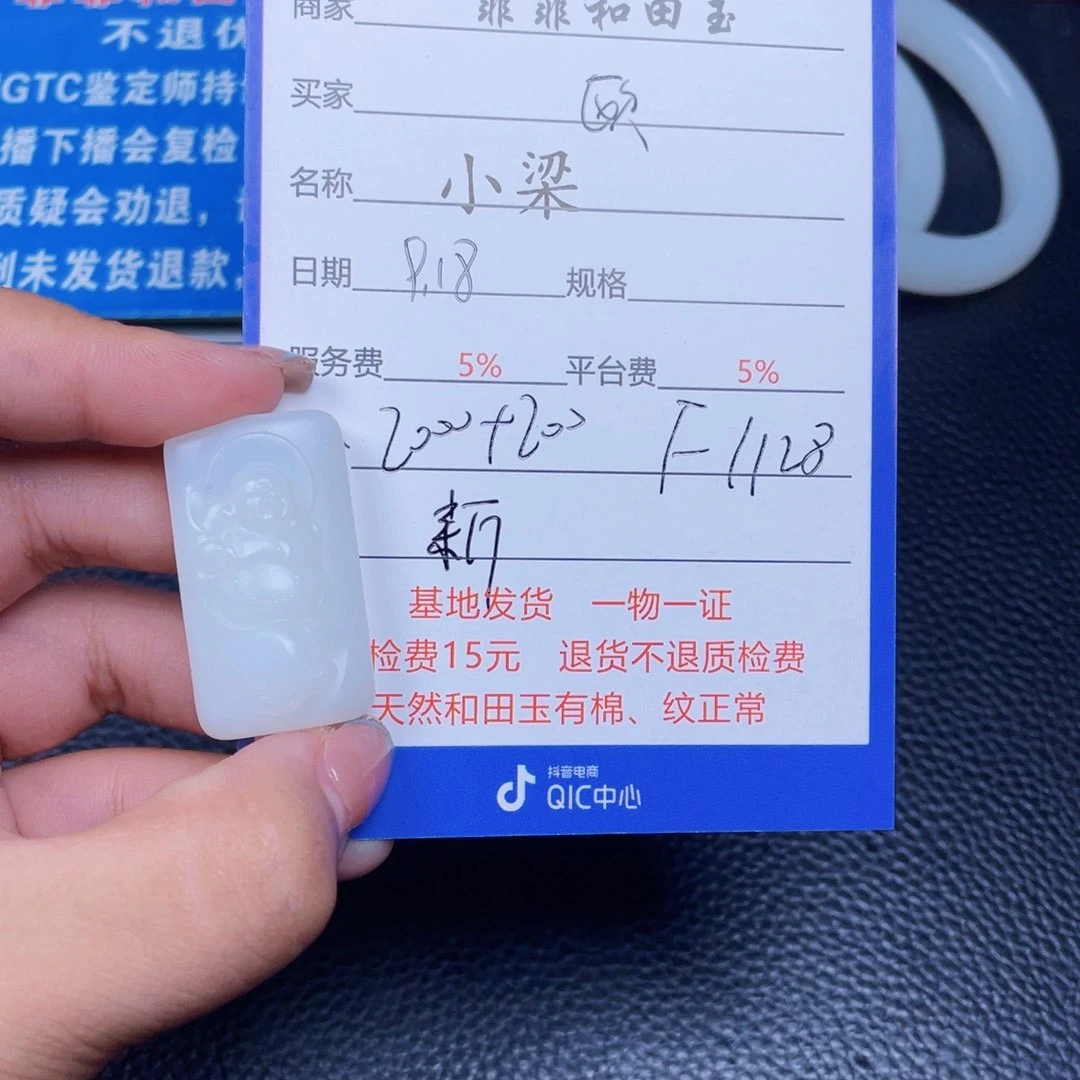 不退
GTC鉴定师持
播下播会复检
质疑会劝退，
未发货退款，
商家 菲菲和田玉
买家 欧
名称 小梁
日期 8.18 规格
服务费 5% 平台费 5%
2000+200 F-1128
新
基地发货 一物一证
检费15元 退货不退质检费
天然和田玉有棉、纹正常
抖音电商
QIC中心